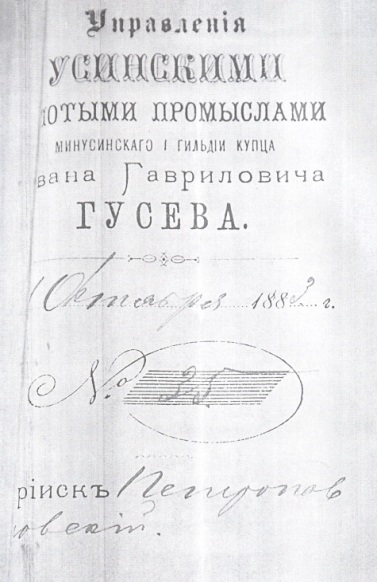 Управленія
УСИНСКИМИ
ЛОТЫМИ ПРОМЫСЛАМИ
МИНУСИНСКАГО I ГИЛЬДІИ КУПЦА
вана Гавриловича
ГУСЕВА.
Октября 1883 г.
№ 35
ріискъ Петропав
ловскій.